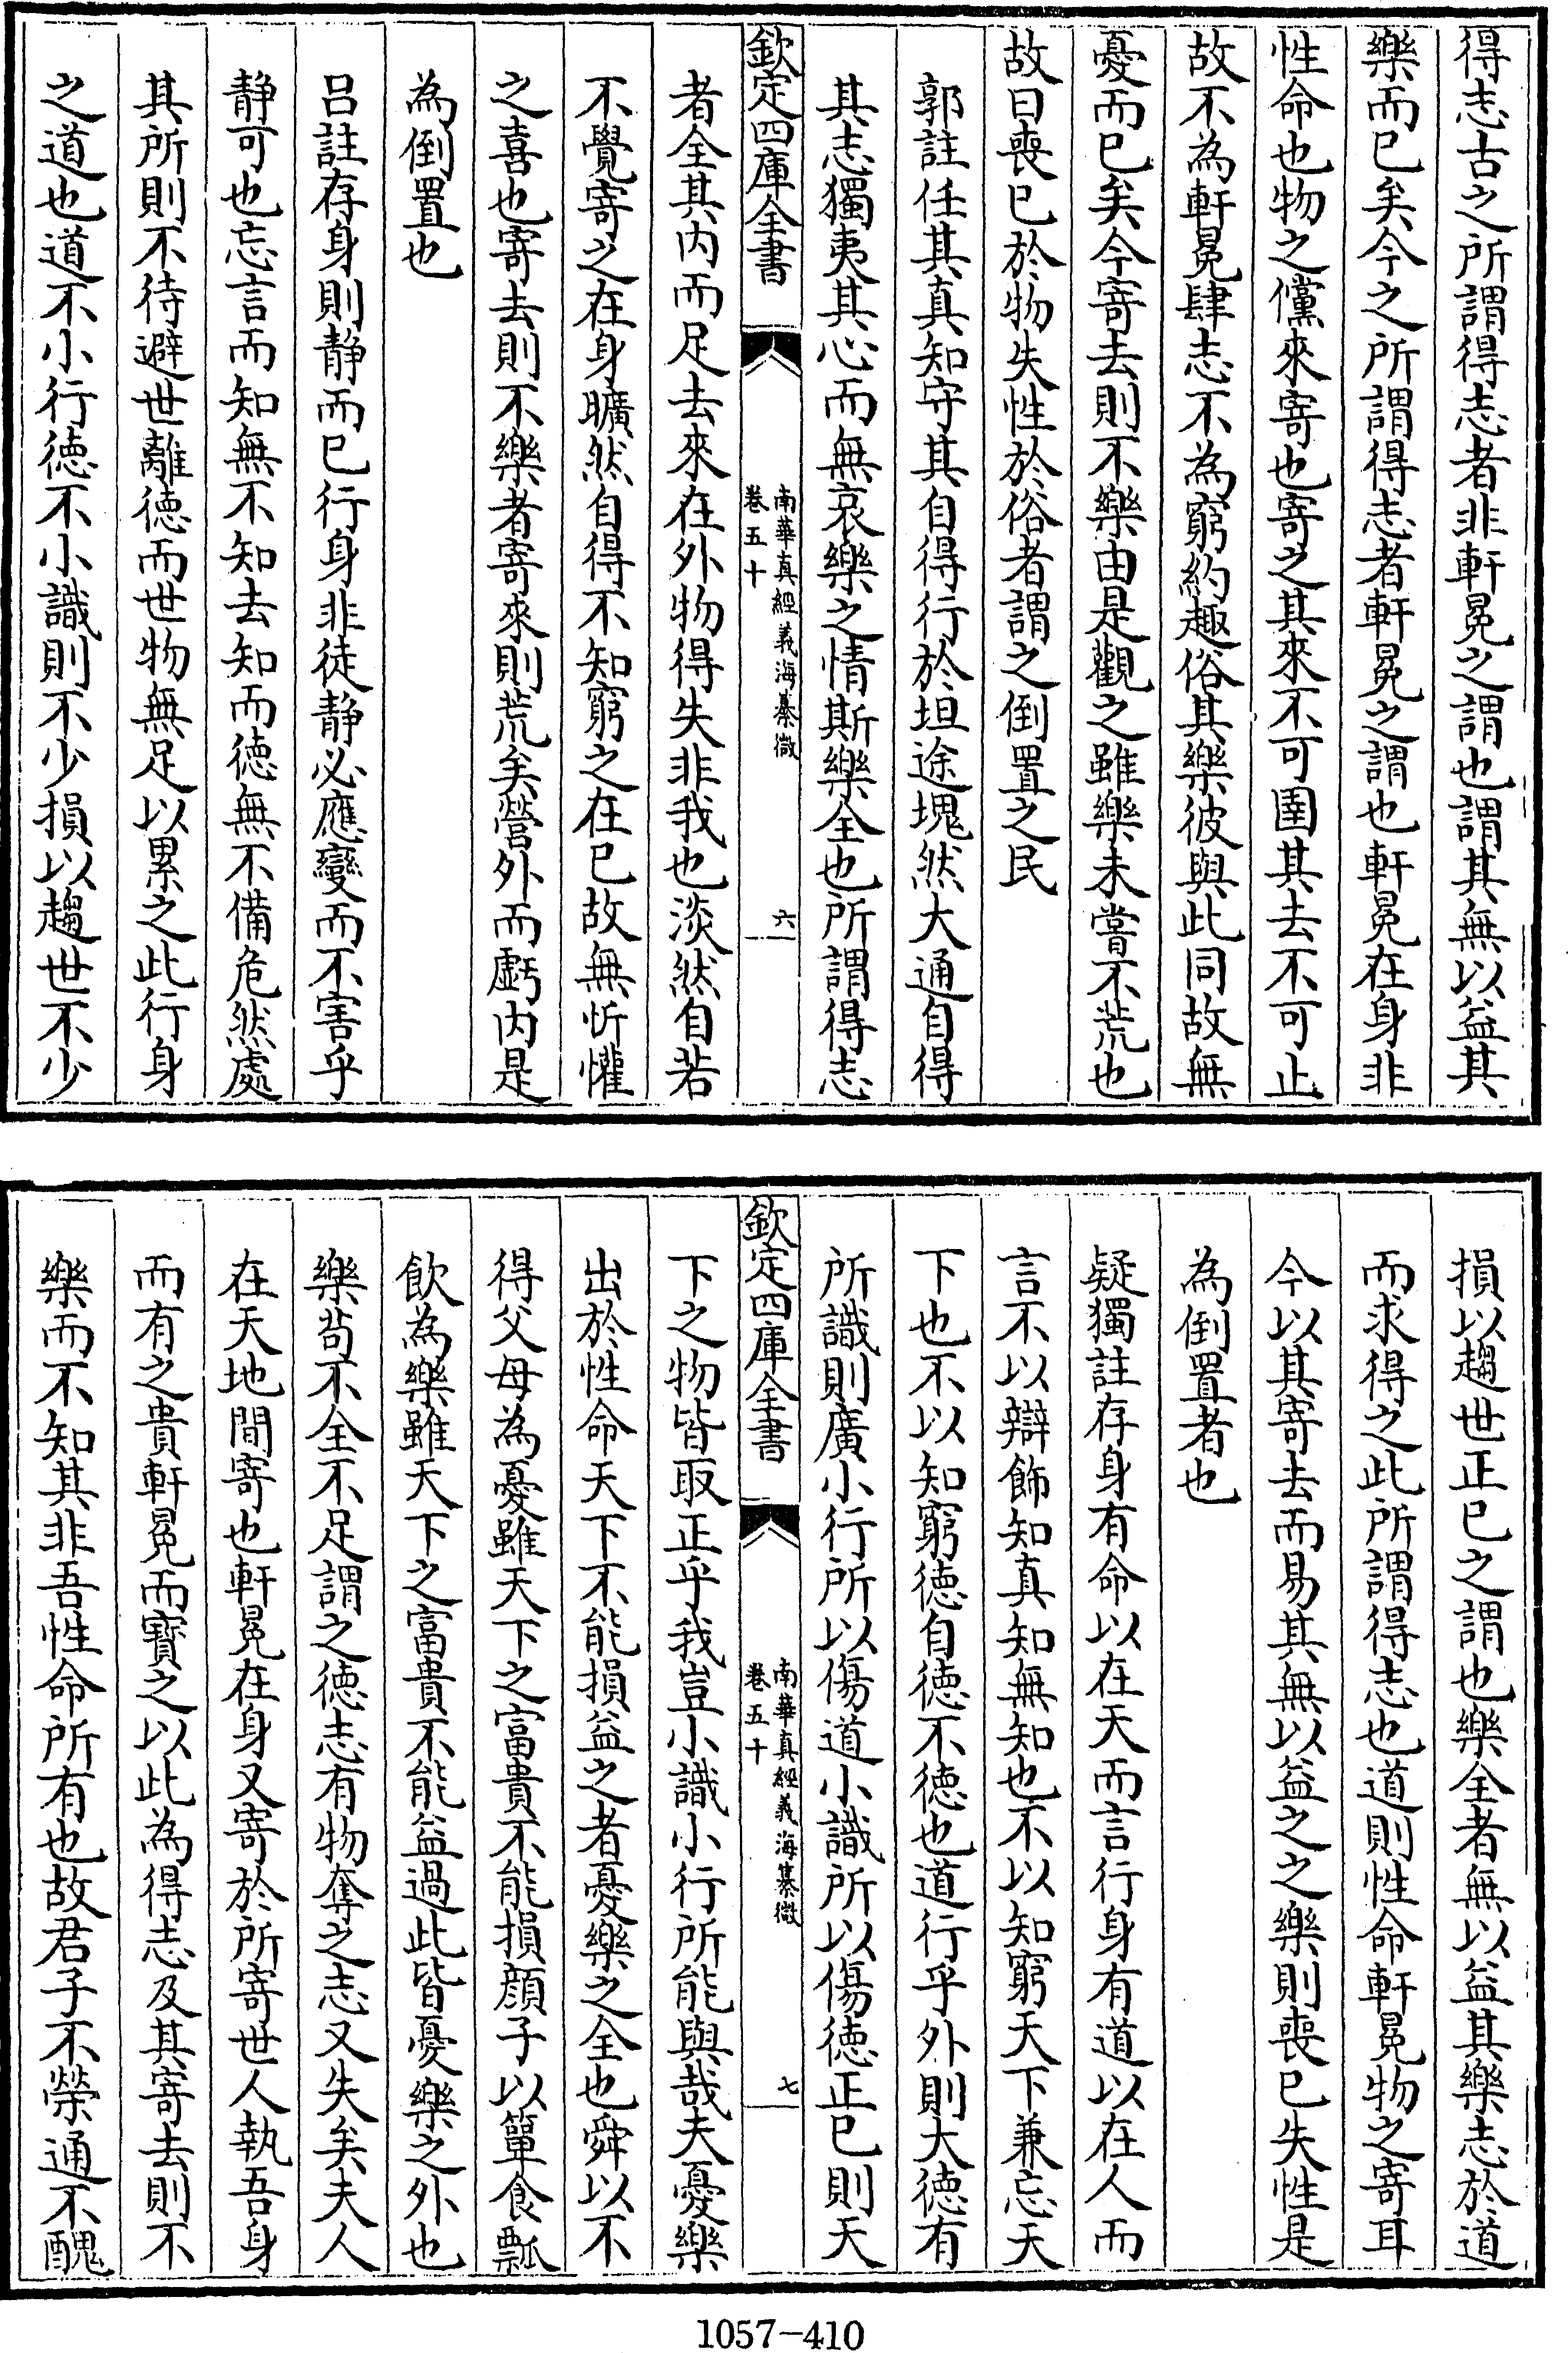 得志古之所謂得志者非軒冕之謂也謂其無以益其
樂而已矣今之所謂得志者軒冕之謂也軒冕在身非
性命也物之儻來寄也寄之其來不可圉其去不可止
故不為軒冕肆志不為窮約趣俗其樂彼與此同故無
憂而已矣今寄去則不樂由是觀之雖樂未嘗不荒也
故曰喪已於物失性於俗者謂之倒置之民
郭註任其真知守其自得行於坦途塊然大通自得
其志獨夷其心而無哀樂之情斯樂全也所謂得志
欽定四庫全書
南華真經義海纂微
卷五十
六
者全其内而足去來在外物得失非我也淡然自若
不覺寄之在身曠然自得不知窮之在已故無忻懽
之喜也寄去則不樂者寄來則荒矣營外而虧内是
為倒置也
吕註存身則静而已行身非徒静必應變而不害乎
静可也忘言而知無不知去知而徳無不備危然處
其所則不待避世離徳而世物無足以累之此行身
之道也道不小行徳不小識則不少損以趨世不少
損以趨世正已之謂也樂全者無以益其樂志於道
而求得之此所謂得志也道則性命軒冕物之寄耳
今以其寄去而易其無以益之之樂則喪已失性是
為倒置者也
疑獨註存身有命以在天而言行身有道以在人而
言不以辯飾知真知無知也不以知窮天下兼忘天
下也不以知窮徳自徳不徳也道行乎外則大徳有
所識則廣小行所以傷道小識所以傷徳正已則天
欽定四庫全書
南華真經義海纂微
卷五十
七
下之物皆取正乎我豈小識小行所能與哉夫憂樂
出於性命天下不能損益之者憂樂之全也舜以不
得父母為憂雖天下之富貴不能損顔子以簞食瓢
飲為樂雖天下之富貴不能益過此皆憂樂之外也
樂茍不全不足謂之徳志有物奪之志又失矣夫人
在天地間寄也軒冕在身又寄於所寄世人執吾身
而有之貴軒冕而寳之以此為得志及其寄去則不
樂而不知其非吾性命所有也故君子不榮通不醜
1057-410